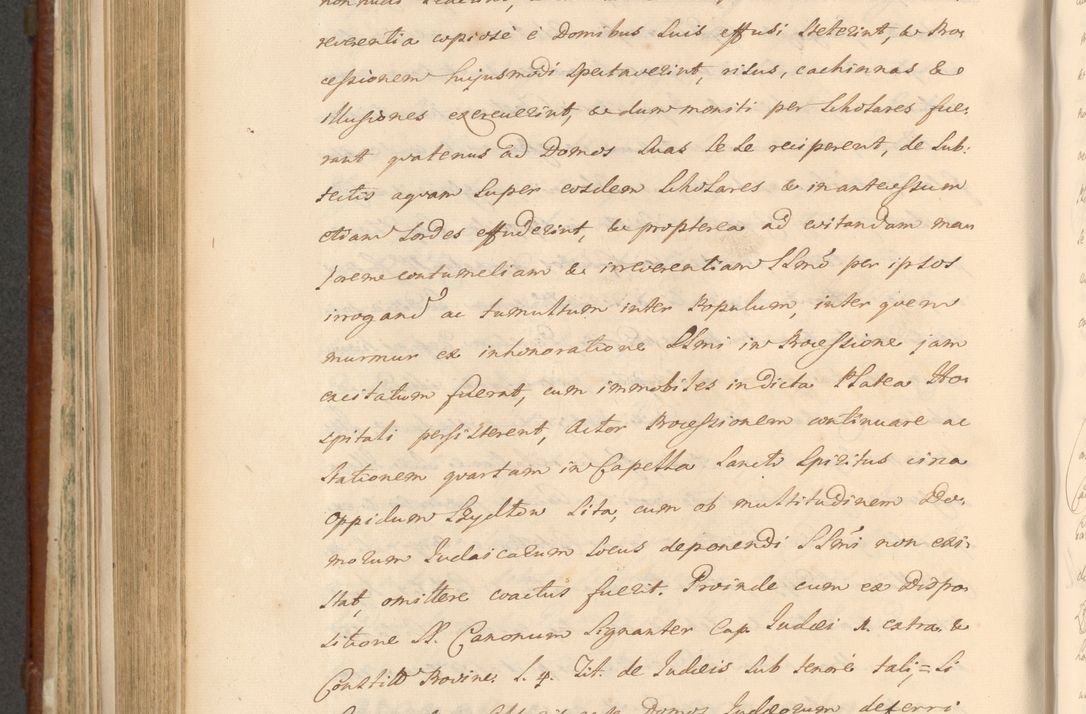 reverentia copiose e Domibus suis effusi steterint, & Pro-
cessionem hujusmodi spectaverint, risus, cachinnas &
illusiones exercuerint, & dum moniti per Scholares fue-
rant quatenus ad Domos suas se se reciperent, de sub-
tectis aquam super eosdem Scholares & in antecessum
etiam sordes effuderint, & propterea ad evitandam ma-
jorem contumeliam & irreverentiam SSmo per ipsos
irrogand ac tumultum inter Populum, inter quem
murmur ex inhonoratione SSmi in Processione jam
excitatum fuerat, cum immobiles in dicta Platea Ho-
spitali persisterent, Actor Processionem continuare ac
stationem quartam in Capella Sancti Spiritus circa
oppidum Szydlow sita, cum ob multitudinem Do-
morum Judaicarum locus deponendi SSmi non exi-
stat, omittere coactus fuerit. Proinde cum ex Dispo-
sitione SS. Canonum signanter Cap. Judæi 1. extra. &
Constit. Provinc. l. 4. Tit. de Judæis sub tenore tali, = Si
Domos Judæorum deferri